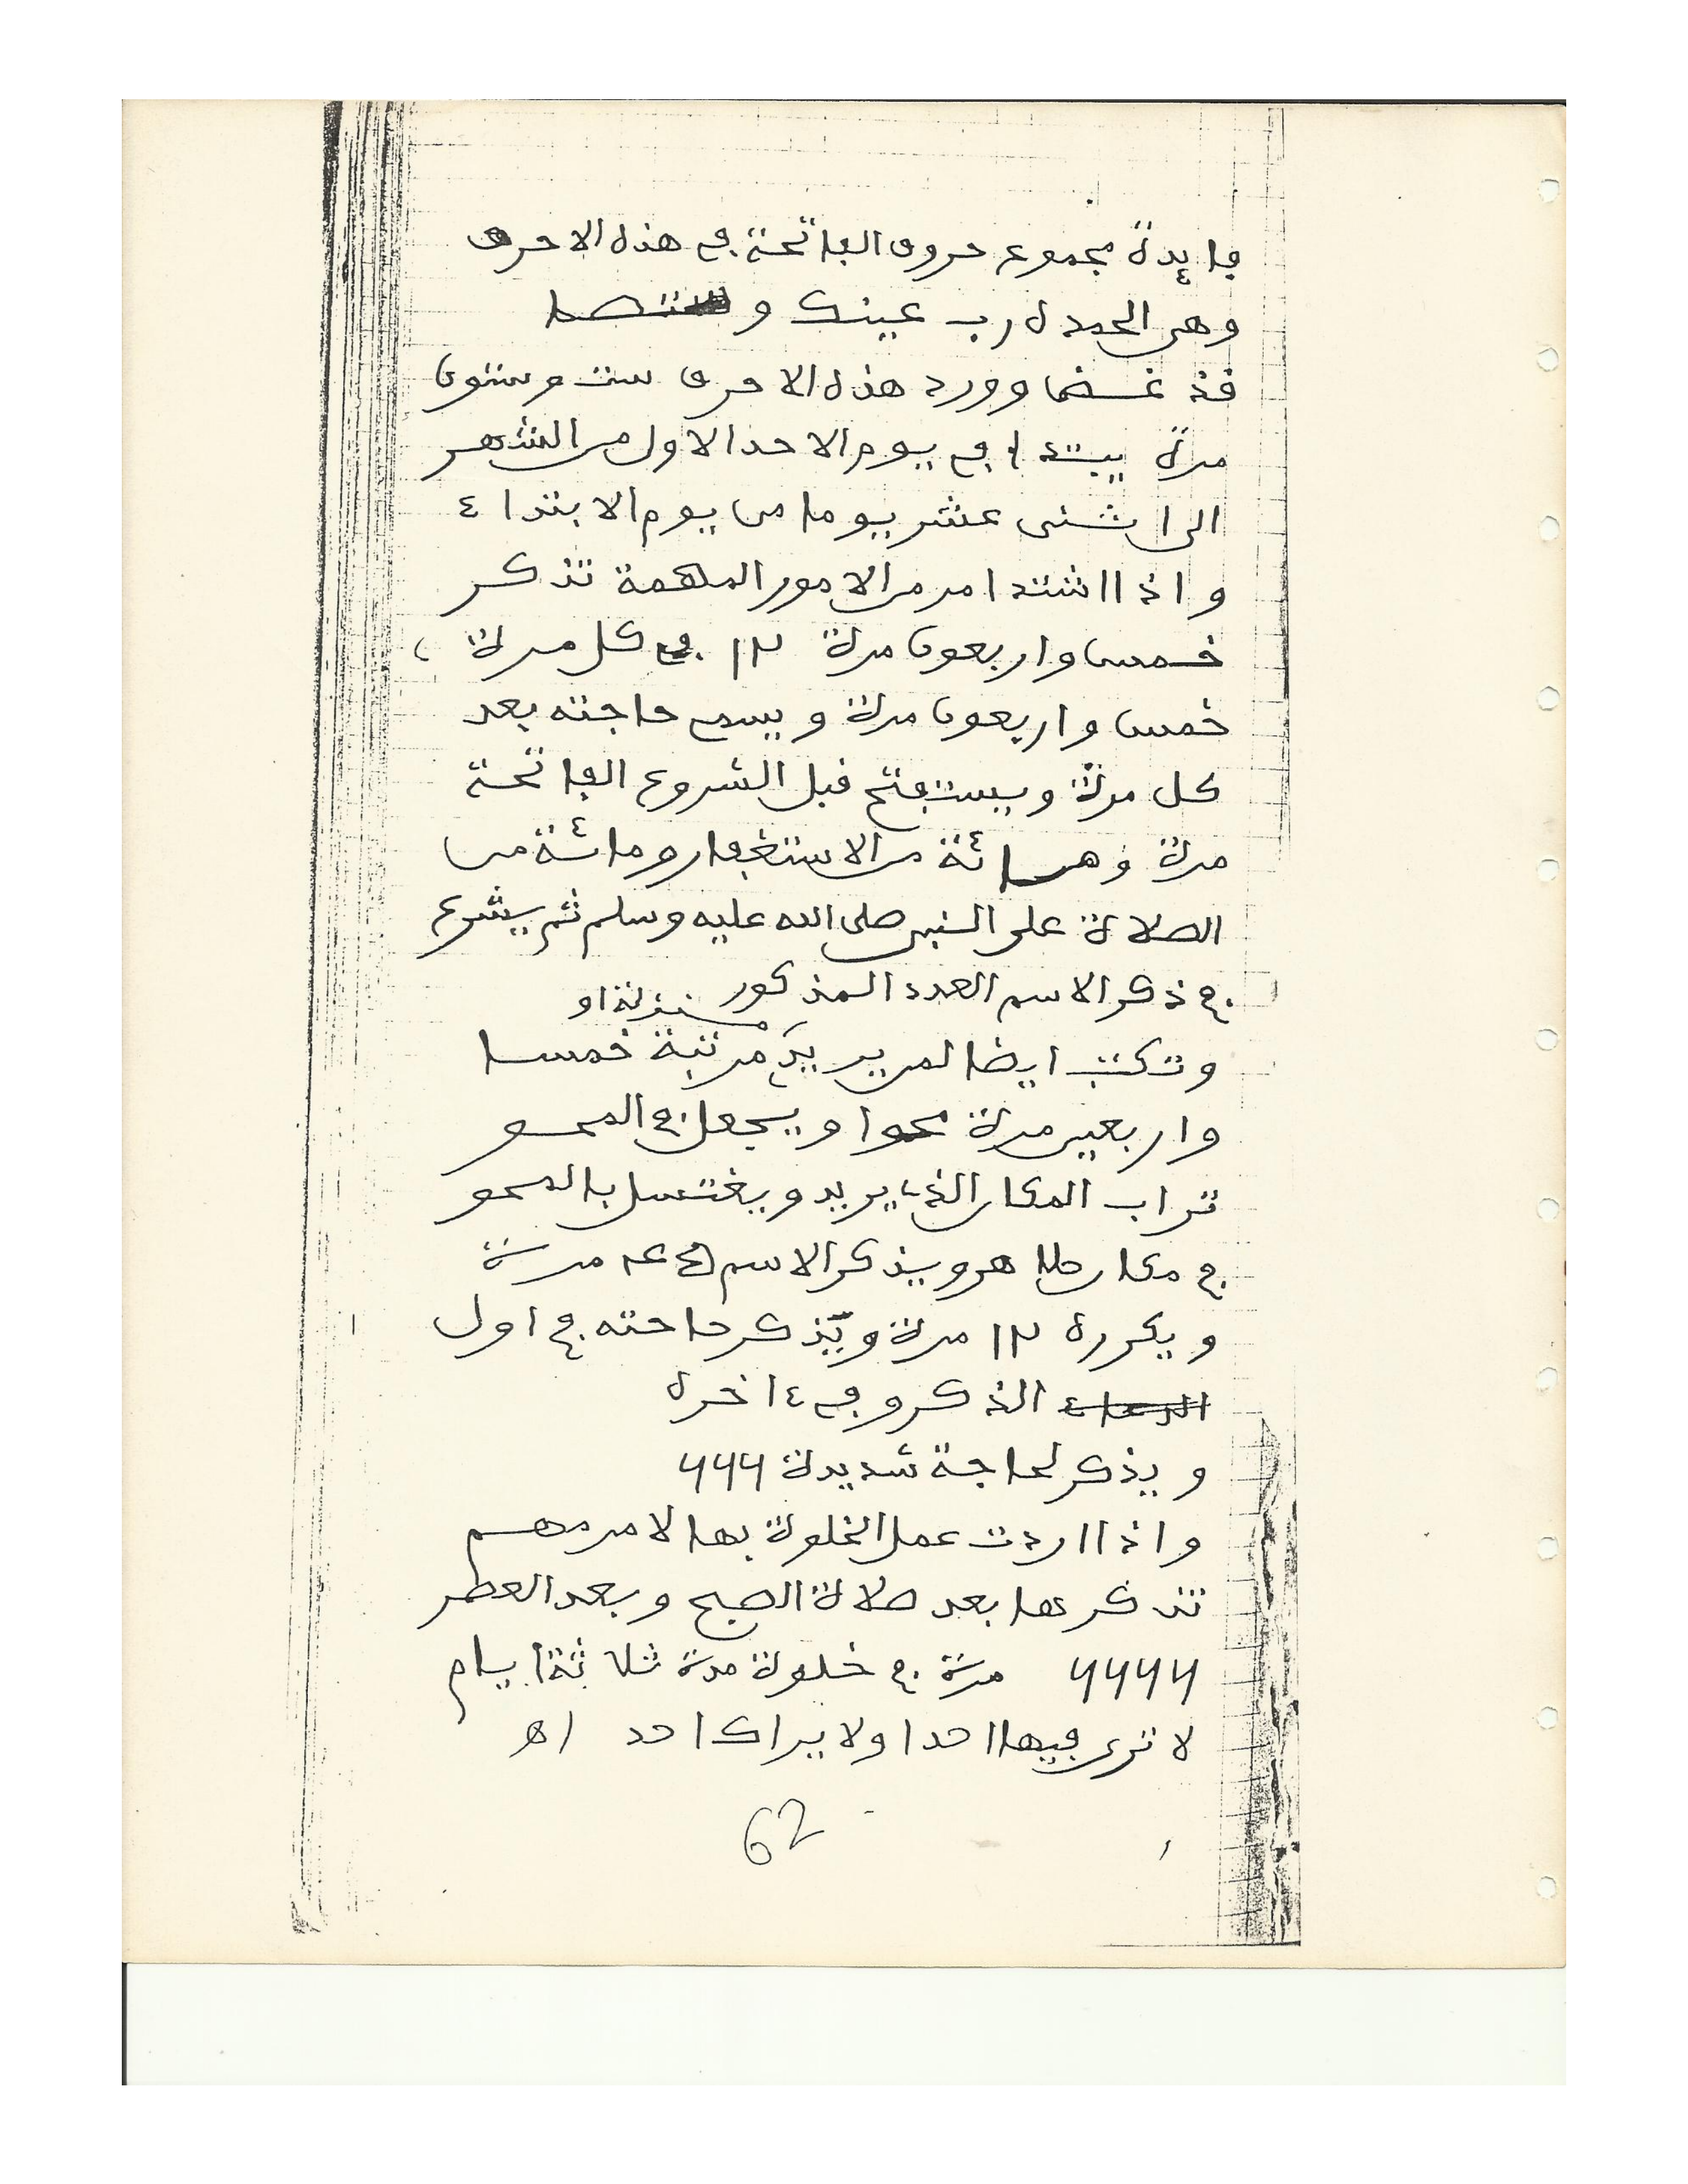 فايدة مجموع حروف الفاتحة في هذه الاحرف
وهي الحمد ل ه رب عينك و ستصط
قذ غضا وورد هذه الاحرف ست وستون
مرة يبتدا في يوم الاحد الاول من الشهر
الى اثنى عشر يوما من يوم الابتداء
واذا اشتد امر من الامور الملهمة تذكر
خمس واربعون مرة ١٢ في كل مرة
خمس واربعون مرة ويسمي حاجته بعد
كل مرة ويستفتح قبل الشروع الفاتحة
مرة ومائة من الاستغفار ومائة من
الصلاة على النبي صلى الله عليه وسلم ثم يشرع
في ذكر الاسم العدد المذكور
وتكتب ايضا لمن يريد منزلة او مرتبة خمسا
واربعين مرة محوا ويجعل في المحو
تراب المكان الذي يريد ويغتسل بالمحو
في مكان طاهر ويذكر الاسم مرة
ويكرره ١٢ مرة ويذكر حاحته في اول
الدعاء الذكر وفي ءاخره
ويذكر لحاجة شديدة ٦٦٦
واذا اردت عمل الخلوة بها لامر مهم
تذكرها بعد صلاة الصبح وبعد العطر
٦٦٦٦ مرة في خلوة مدة ثلاثة ايام
لا ترى فيها احدا ولا يراك احد اه
62